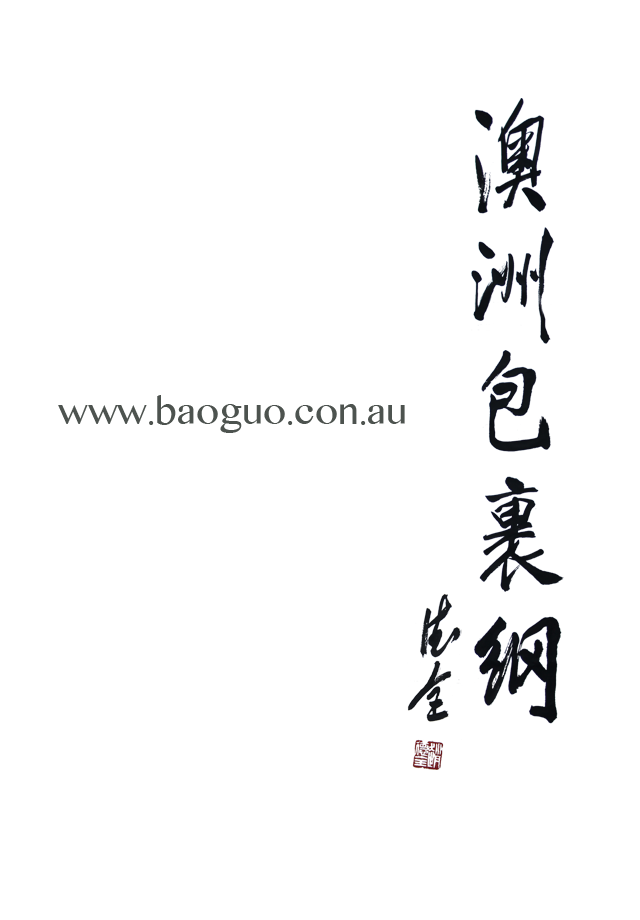 澳洲包裹網
www.baoguo.con.au